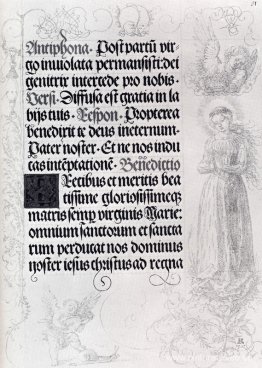 51
Antiphona. Post partū vir-
go inviolata permansisti: dei
genitrix intercede pro nobis.
Versi. Diffusa est gratia in la-
bijs tuis. Respon. Propterea
benedixit te deus ineternum.
Pater noster. Et ne nos indu
cas intēptationē. Benedictio
Precibus et meritis bea
tissime gloriosissimeq;
matris semp virginis Marie:
omnium sanctorum et sancta
rum perducat nos dominus
noster iesus christus ad regna